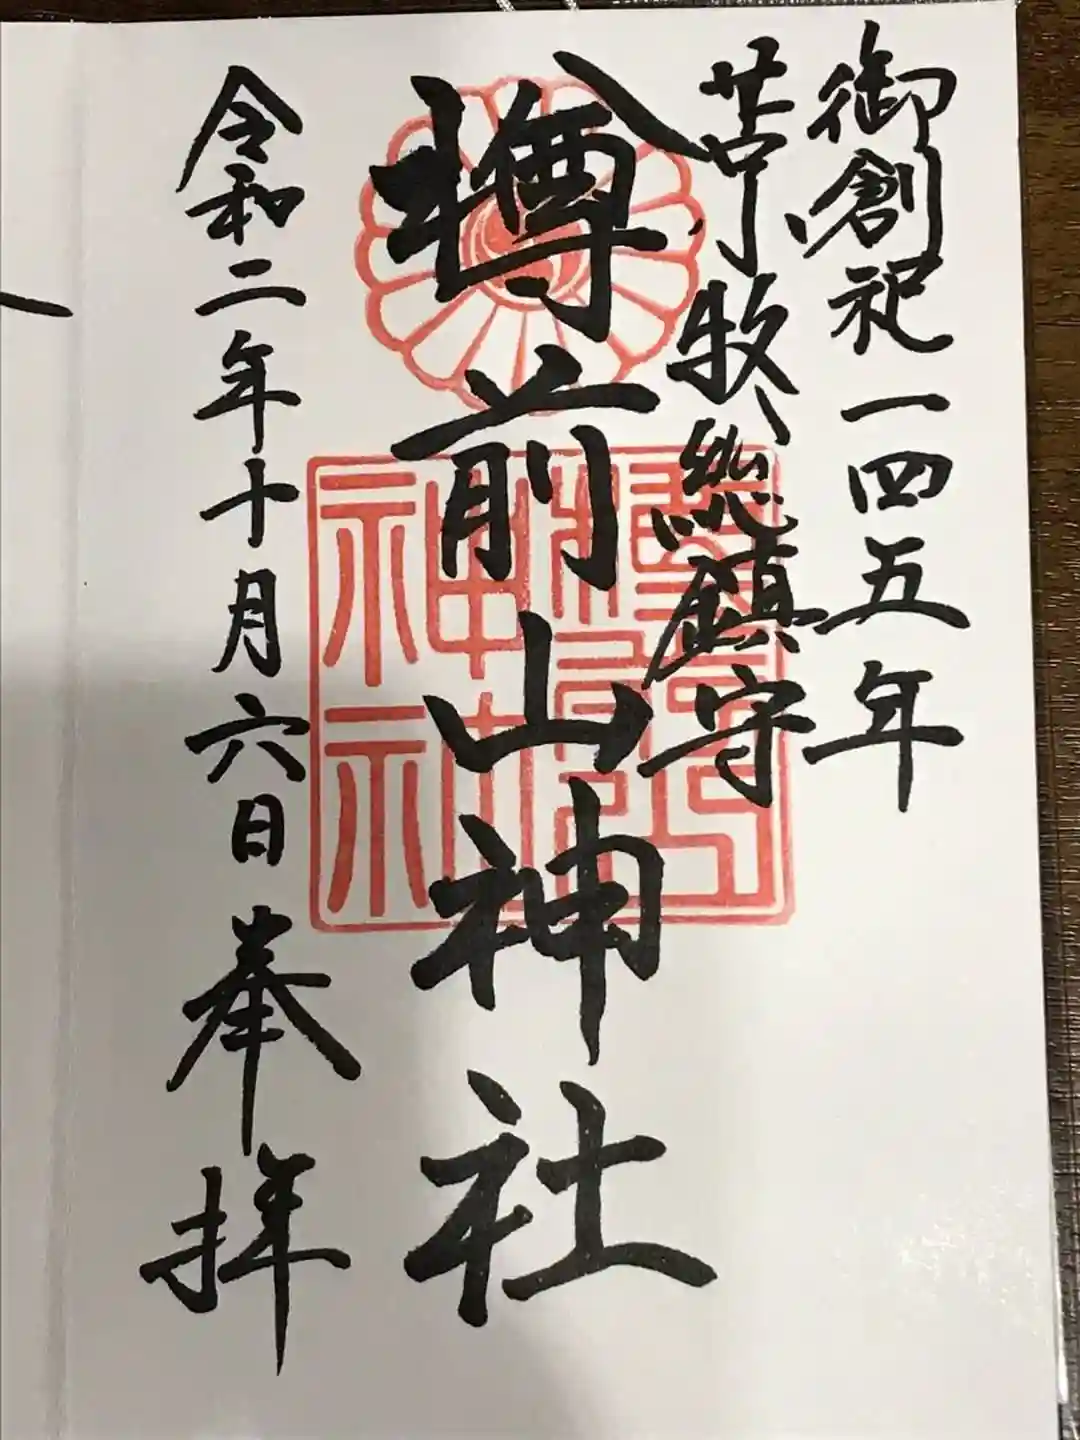 御創祀一四五年
苫小牧総鎮守
樽前山神社
令和二年十月六日奉拝